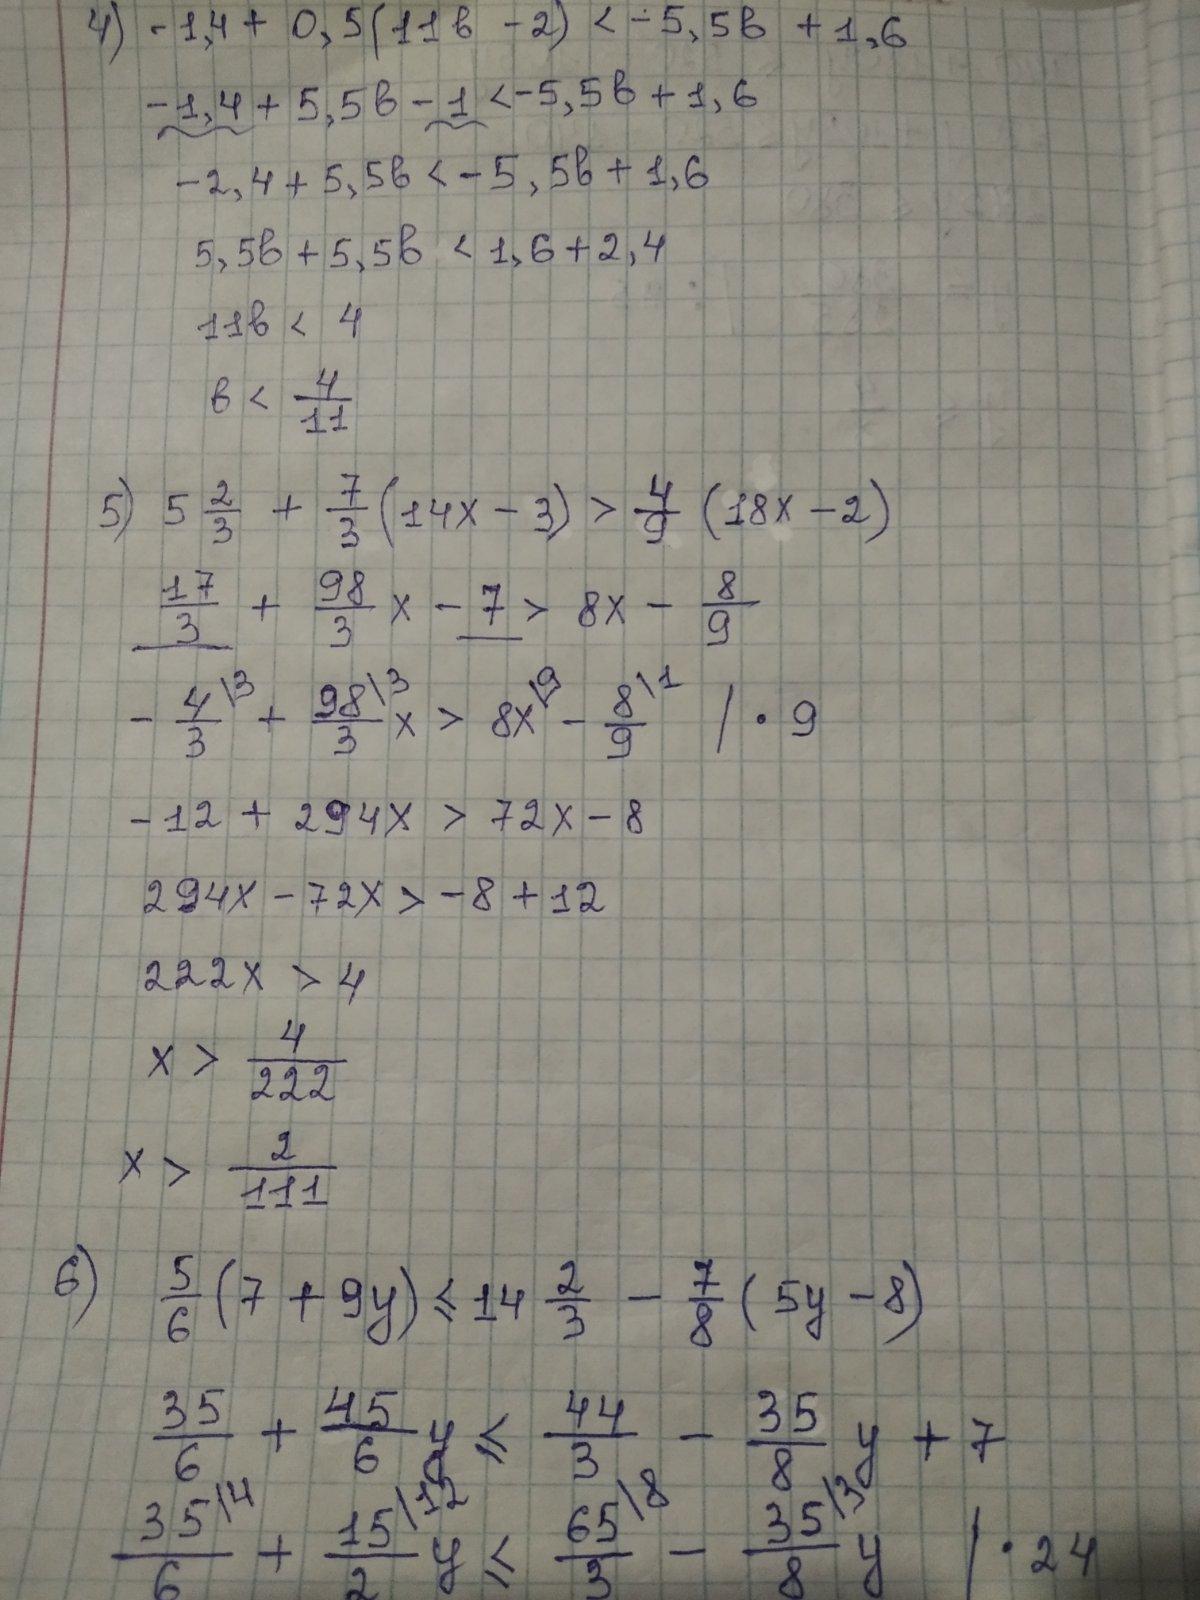 4) -1,4 + 0,5(11в - 2) < -5,5в + 1,6
-1,4 + 5,5в - 1 < -5,5в + 1,6
-2,4 + 5,5в < -5,5в + 1,6
5,5в + 5,5в < 1,6 + 2,4
11в < 4
в < 4/11
5) 5 2/3 + 7/3 (14x - 3) > 4/9 (18x - 2)
17/3 + 98/3 x - 7 > 8x - 8/9
- 4/3 \3 + 98/3 \3 x > 8x \9 - 8/9 \1 | · 9
-12 + 294x > 72x - 8
294x - 72x > -8 + 12
222x > 4
x > 4/222
x > 2/111
6) 5/6 (7 + 9y) ⩽ 14 2/3 - 7/8 (5y - 8)
35/6 + 45/6 y ⩽ 44/3 - 35/8 y + 7
35/6 \4 + 15/2 \12 y ⩽ 65/3 \8 - 35/8 \3 y | · 24